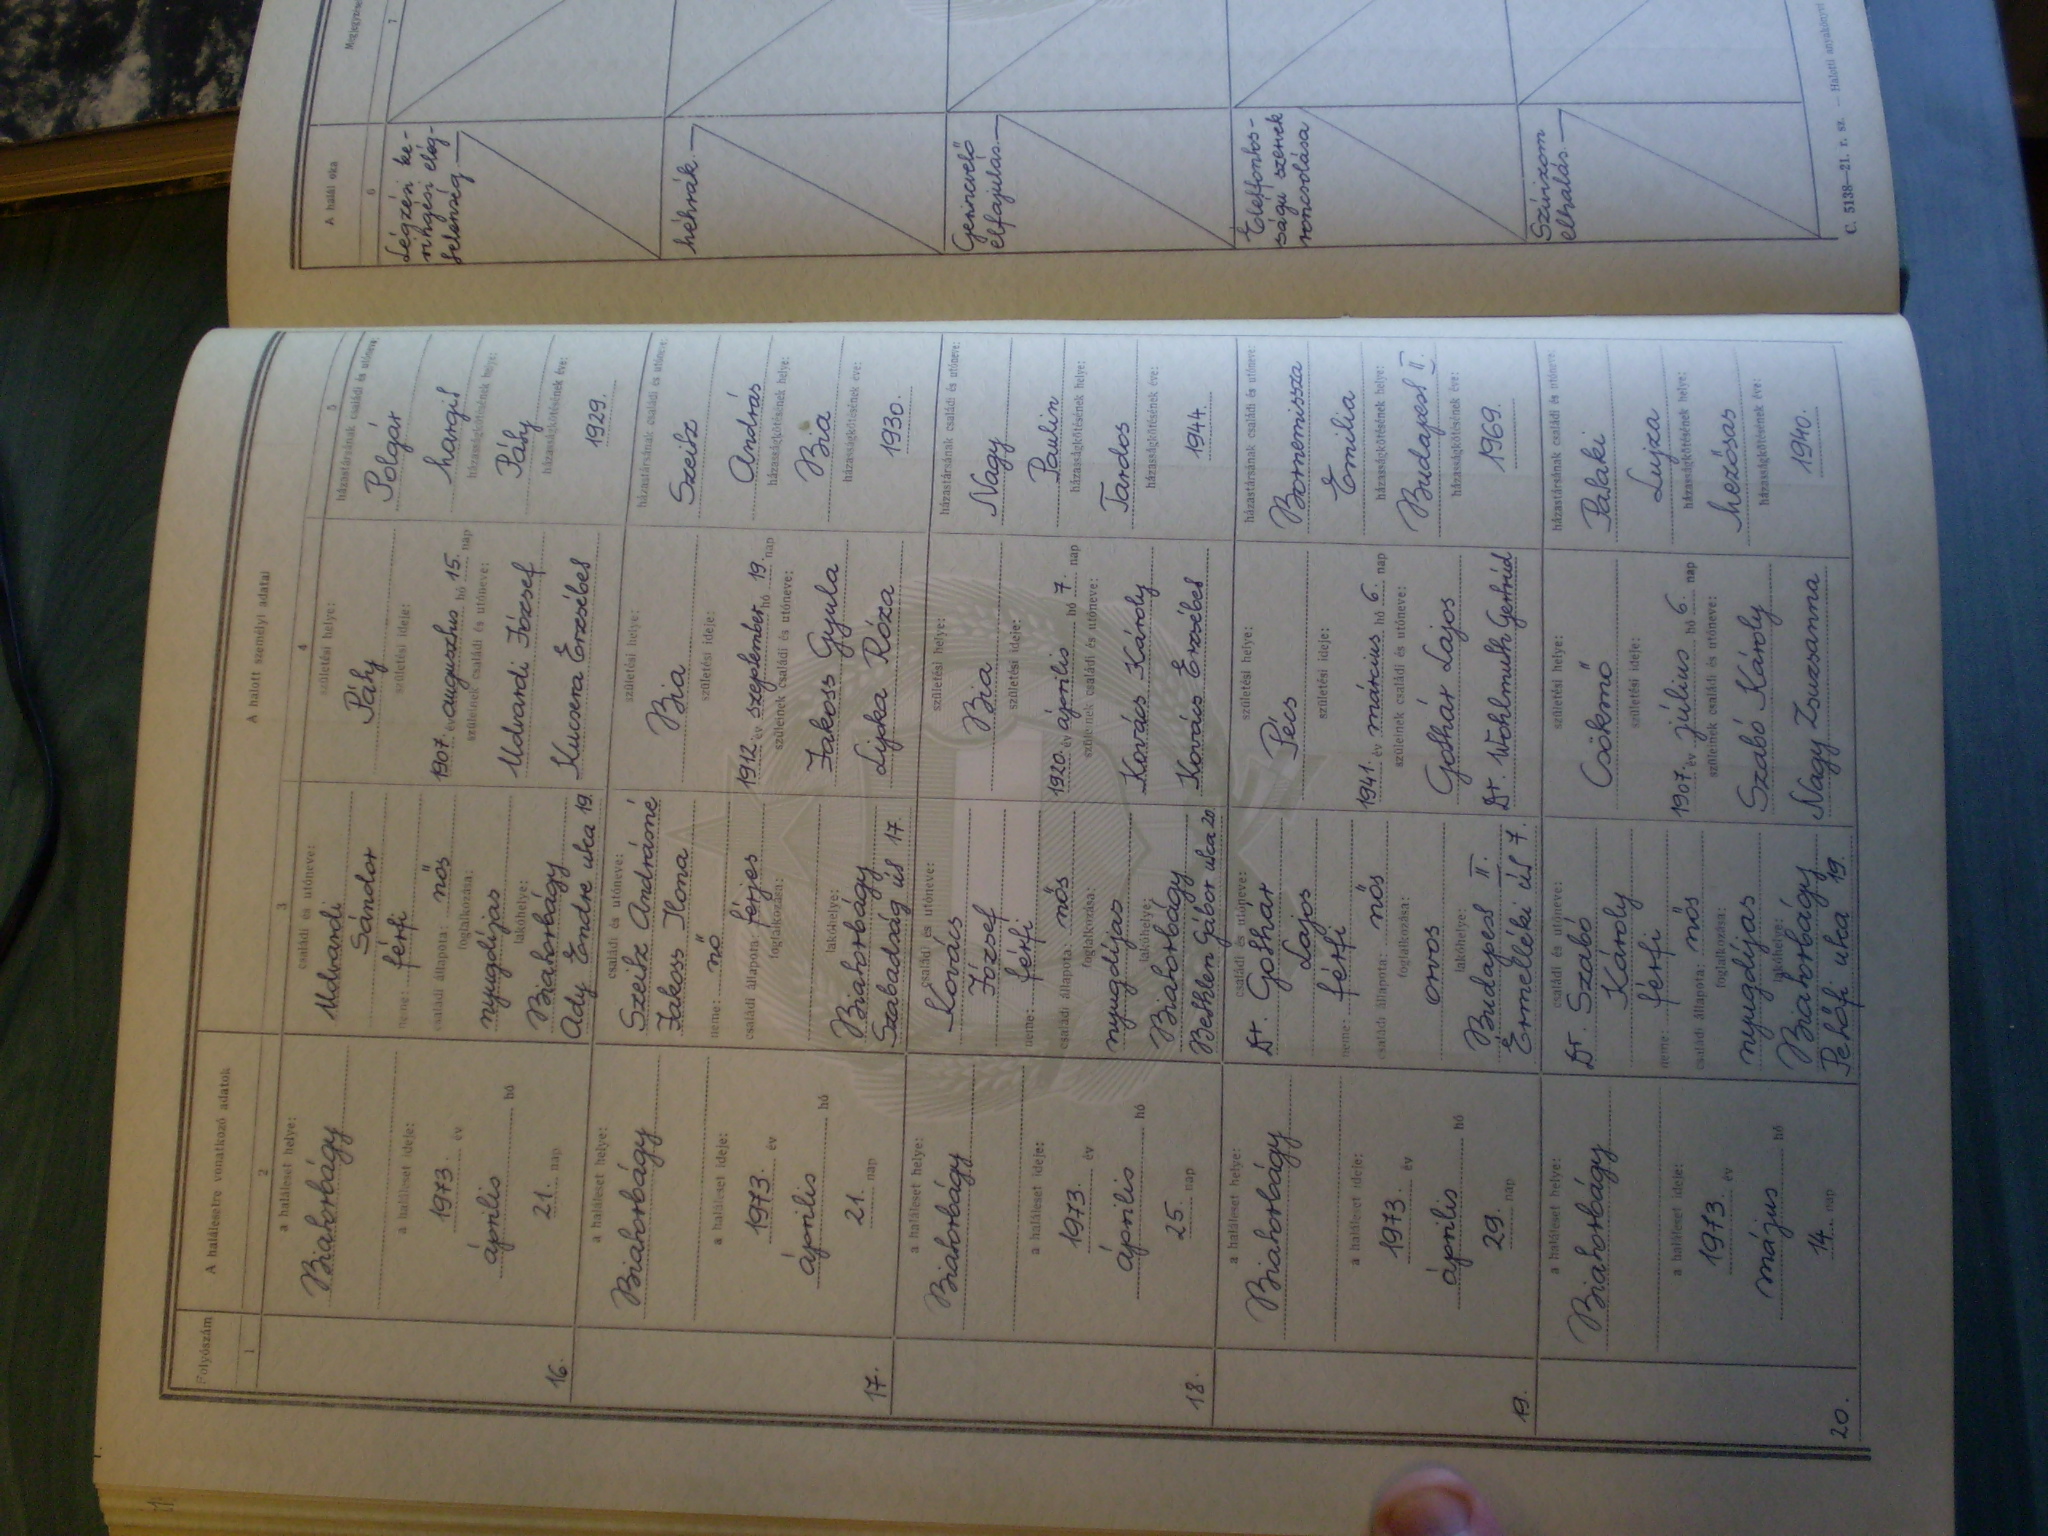 Folyószám
A halálesetre vonatkozó adatok
A halott személyi adatai
A halál oka
1
2
3
4
5
6
7
16.
a haláleset helye:
Biatorbágy
a haláleset ideje:
1973. év
április hó
21. nap
családi és utóneve:
Udvardi
Sándor
neme: férfi
családi állapota: nős
foglalkozása:
nyugdíjas
lakóhelye:
Biatorbágy
Ady Endre utca 19.
születési helye:
Páty
születési ideje:
1907. év augusztus hó 15. nap
szüleinek családi és utóneve:
Udvardi József
Kucsera Erzsébet
házastársának családi és utóneve:
Polgár
Margit
házasságkötésének helye:
Páty
házasságkötésének éve:
1929.
Légzési ke-
ringési elég-
telenség.
17.
a haláleset helye:
Biatorbágy
a haláleset ideje:
1973. év
április hó
21. nap
családi és utóneve:
Szeitz Andrásné
Jakoss Ilona
neme: nő
családi állapota: férjes
foglalkozása:
lakóhelye:
Biatorbágy
Szabadság út 17.
születési helye:
Bia
születési ideje:
1912. év szeptember hó 19. nap
szüleinek családi és utóneve:
Jakoss Gyula
Lipka Róza
házastársának családi és utóneve:
Szeitz
András
házasságkötésének helye:
Bia
házasságkötésének éve:
1930.
Méhrák.
18.
a haláleset helye:
Biatorbágy
a haláleset ideje:
1973. év
április hó
25. nap
család és utóneve:
Kovács
József
neme: férfi
családi állapota: nős
foglalkozása:
nyugdíjas
lakóhelye:
Biatorbágy
Bethlen Gábor utca 20.
születési helye:
Bia
születési ideje:
1920. év április hó 7. nap
szüleinek családi és utóneve:
Kovács Károly
Kovács Erzsébet
házastársának családi és utóneve:
Nagy
Paulin
házasságkötésének helye:
Tardos
házasságkötésének éve:
1944.
elfajulás.
19.
a haláleset helye:
Biatorbágy
a haláleset ideje:
1973. év
április hó
29. nap
családi és utóneve:
Dr. Gothár
Lajos
neme: férfi
családi állapota: nős
foglalkozása:
orvos
lakóhelye:
Budapest II.
Érmelléki út 7.
születési helye:
Pécs
születési ideje:
1941. év március hó 6. nap
szüleinek családi és utóneve:
Gothár Lajos
Dr. Wohlmuth Gertrúd
házastársának családi és utóneve:
Bornemissza
Emilia
házasságkötésének helye:
Budapest II.
házasságkötésének éve:
1969.
Életfontos-
ságú szervek
roncsolása
20.
a haláleset helye:
Biatorbágy
a haláleset ideje:
1973. év
május hó
14. nap
családi és utóneve:
Dr. Szabó
Károly
neme: férfi
családi állapota: nős
foglalkozása:
nyugdíjas
lakóhelye:
Biatorbágy
Petőfi utca 19.
születési helye:
Csökmő
születési ideje:
1907. év július hó 6. nap
szüleinek családi és utóneve:
Szabó Károly
Nagy Zsuzsanna
házastársának családi és utóneve:
Pataki
Lujza
házasságkötésének helye:
Mezősas
házasságkötésének éve:
1940.
Szívizom
elhalás.
C. 5138—21. r. sz. — Halotti anyakönyv